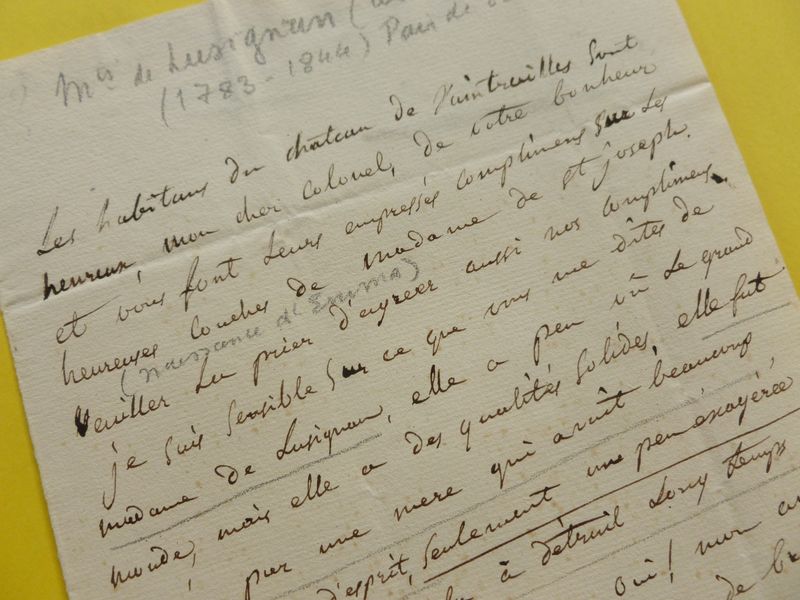 Mis de Lusignan
(1783-1844) Pair de
Les habitans du château de Vaintreuilles sont
heureux, mon cher colonel, de votre bonheur
et vous font leurs empressés complimens sur les
heureuses couches de madame de St joseph.
(naissance d'Emma)
Veuiller la prier d'agreer aussi nos complimens,
je suis sensible sur ce que vous me dites de
madame de Lusignan, elle a peu vû le grand
monde, mais elle a des qualités solides, elle fut
par une mere qui avoit beaucoup
d'esprit, seulement un peu exagérée
à detruil long temps
oui! mon
de